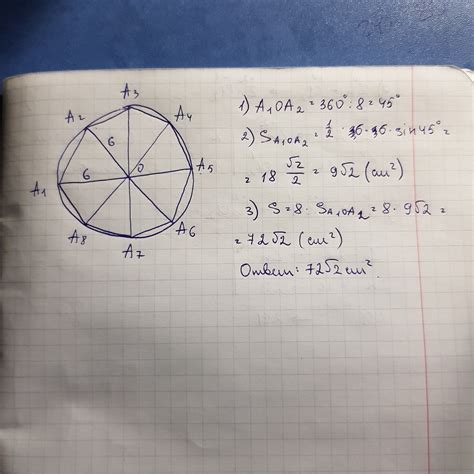 A3
A2
A4
6
6
O
A5
A1
A8
A6
A7
1) A₁OA₂ = 360° : 8 = 45°
2) S A₁OA₂ = 1/2 · 6 · 6 · sin45° =
= 18 √2/2 = 9√2 (см²)
3) S = 8 · S A₁OA₂ = 8 · 9√2 =
= 72√2 (см²)
Ответ: 72√2 см².